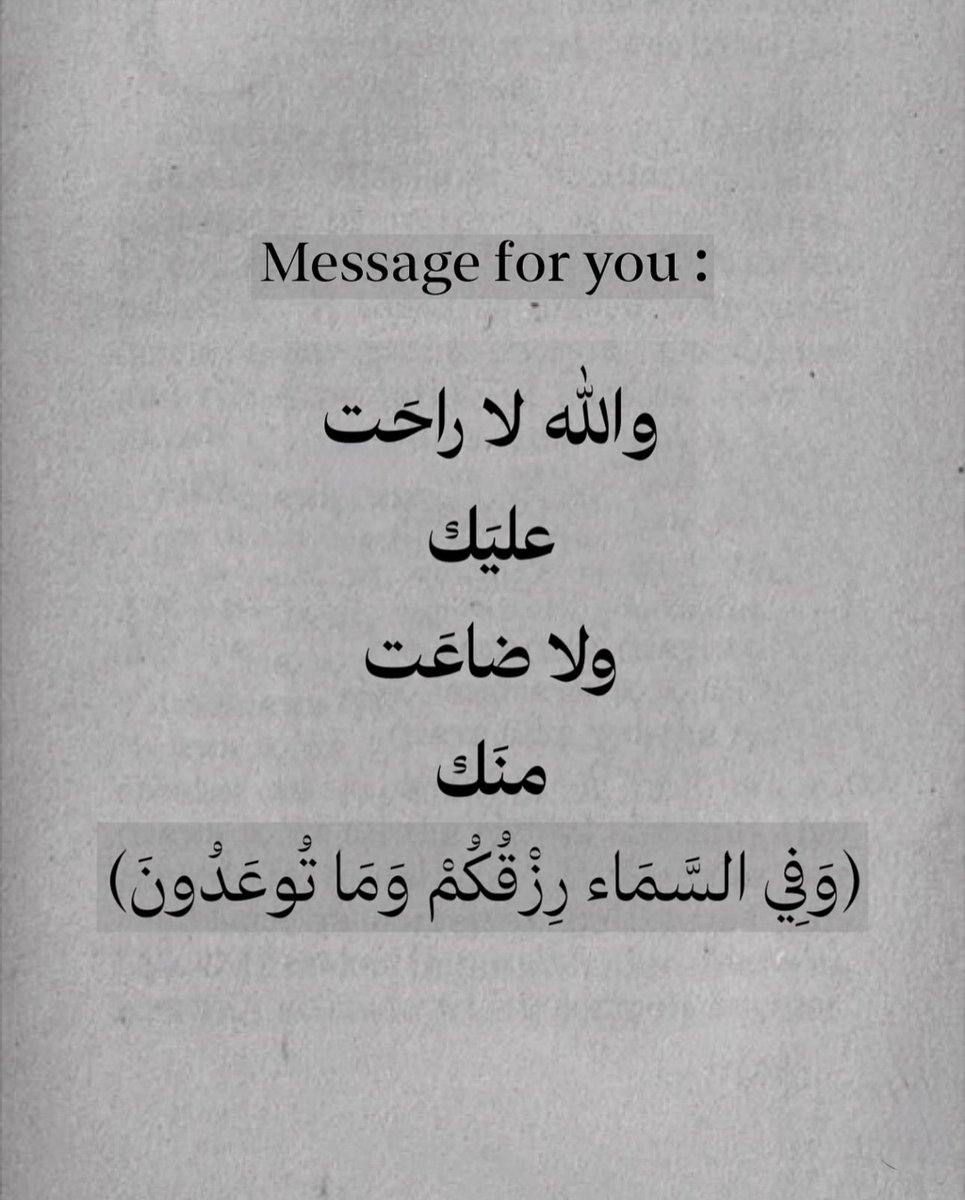 Message for you :
والله لا راحَت
عليَك
ولا ضاعَت
منَك
(وَفِي السَّمَاء رِزْقُكُمْ وَمَا تُوعَدُونَ)